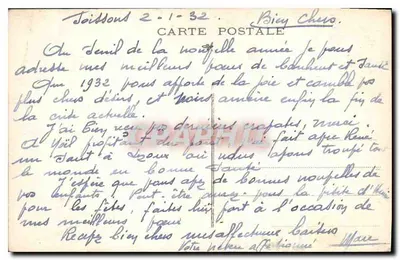 Soissons 2-1-32. Bien Chers.
CARTE POSTALE
Au seuil de la nouvelle année je vous
adresse mes meilleurs vœux de bonheur et santé
Que 1932, vous apporte de la joie et comble vos
plus chers désirs, et nous amène enfin la fin de
la crise actuelle.
J'ai bien reçu vos dernières, merci.
A Noël fait avec René
un saut à où nous avons trouvé tout
le monde en bonne santé
J'espère que vous avez de bonnes nouvelles de
vos enfants. pour la petite
pour les fêtes, faites lui part à l'occasion de
mes meilleurs vœux
Recevez bien chers mes affectueux baisers
Votre neveu affectionné Marc